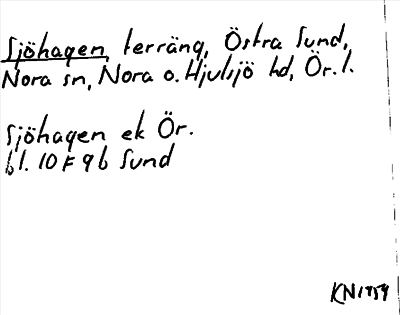 Sjöhagen, terräng, Östra Sund,
Nora sn, Nora o. Hjulsjö hd, Ör. l.
Sjöhagen ek Ör.
bl. 10F 9b Sund
KN1959